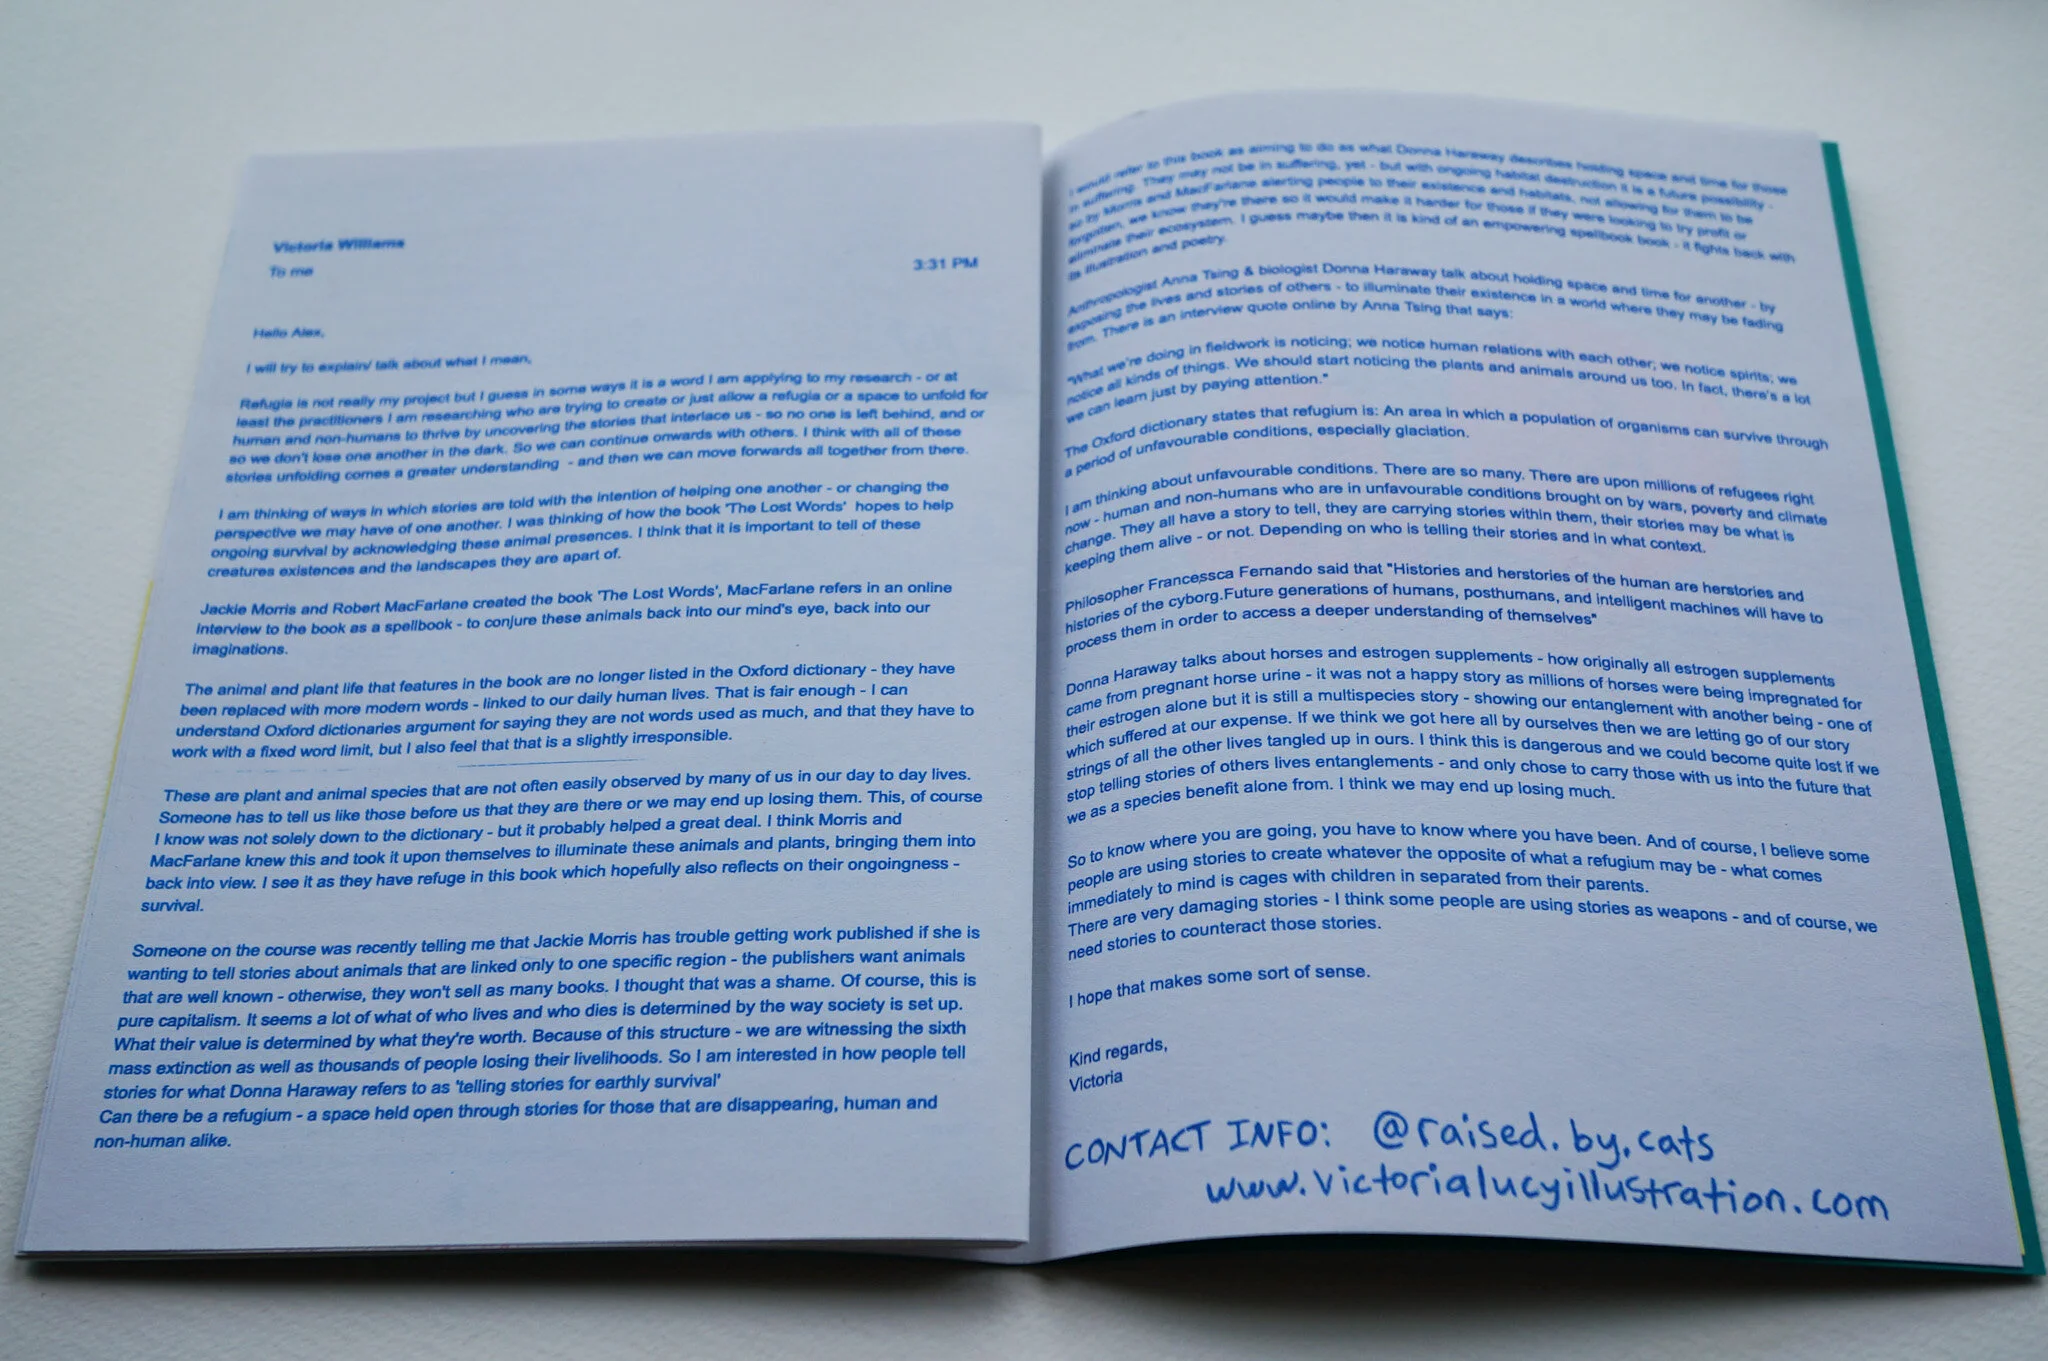 Victoria Williams
To me
3:31 PM
Hello Alex,
I will try to explain/ talk about what I mean,
Refugia is not really my project but I guess in some ways it is a word I am applying to my research - or at
least the practitioners I am researching who are trying to create or just allow a refugia or a space to unfold for
human and non-humans to thrive by uncovering the stories that interlace us - so no one is left behind, and or
so we don't lose one another in the dark. So we can continue onwards with others. I think with all of these
stories unfolding comes a greater understanding - and then we can move forwards all together from there.
I am thinking of ways in which stories are told with the intention of helping one another - or changing the
perspective we may have of one another. I was thinking of how the book 'The Lost Words' hopes to help
ongoing survival by acknowledging these animal presences. I think that it is important to tell of these
creatures existences and the landscapes they are apart of.
Jackie Morris and Robert MacFarlane created the book 'The Lost Words', MacFarlane refers in an online
interview to the book as a spellbook - to conjure these animals back into our mind's eye, back into our
imaginations.
The animal and plant life that features in the book are no longer listed in the Oxford dictionary - they have
been replaced with more modern words - linked to our daily human lives. That is fair enough - I can
understand Oxford dictionaries argument for saying they are not words used as much, and that they have to
work with a fixed word limit, but I also feel that that is a slightly irresponsible.
These are plant and animal species that are not often easily observed by many of us in our day to day lives.
Someone has to tell us like those before us that they are there or we may end up losing them. This, of course
I know was not solely down to the dictionary - but it probably helped a great deal. I think Morris and
MacFarlane knew this and took it upon themselves to illuminate these animals and plants, bringing them into
back into view. I see it as they have refuge in this book which hopefully also reflects on their ongoingness -
survival.
Someone on the course was recently telling me that Jackie Morris has trouble getting work published if she is
wanting to tell stories about animals that are linked only to one specific region - the publishers want animals
that are well known - otherwise, they won't sell as many books. I thought that was a shame. Of course, this is
pure capitalism. It seems a lot of what of who lives and who dies is determined by the way society is set up.
What their value is determined by what they're worth. Because of this structure - we are witnessing the sixth
mass extinction as well as thousands of people losing their livelihoods. So I am interested in how people tell
stories for what Donna Haraway refers to as 'telling stories for earthly survival'
Can there be a refugium - a space held open through stories for those that are disappearing, human and
non-human alike.
I would refer to this book as aiming to do as what Donna Haraway describes holding space and time for those
in suffering. They may not be in suffering, yet - but with ongoing habitat destruction it is a future possibility -
so by Morris and MacFarlane alerting people to their existence and habitats, not allowing for them to be
forgotten, we know they're there so it would make it harder for those if they were looking to try profit or
eliminate their ecosystem. I guess maybe then it is kind of an empowering spellbook book - it fights back with
its illustration and poetry.
Anthropologist Anna Tsing & biologist Donna Haraway talk about holding space and time for another - by
exposing the lives and stories of others - to illuminate their existence in a world where they may be fading
from. There is an interview quote online by Anna Tsing that says:
"What we're doing in fieldwork is noticing; we notice human relations with each other; we notice spirits; we
notice all kinds of things. We should start noticing the plants and animals around us too. In fact, there's a lot
we can learn just by paying attention."
The Oxford dictionary states that refugium is: An area in which a population of organisms can survive through
a period of unfavourable conditions, especially glaciation.
I am thinking about unfavourable conditions. There are so many. There are upon millions of refugees right
now - human and non-humans who are in unfavourable conditions brought on by wars, poverty and climate
change. They all have a story to tell, they are carrying stories within them, their stories may be what is
keeping them alive - or not. Depending on who is telling their stories and in what context.
Philosopher Francessca Fernando said that "Histories and herstories of the human are herstories and
histories of the cyborg.Future generations of humans, posthumans, and intelligent machines will have to
process them in order to access a deeper understanding of themselves"
Donna Haraway talks about horses and estrogen supplements - how originally all estrogen supplements
came from pregnant horse urine - it was not a happy story as millions of horses were being impregnated for
their estrogen alone but it is still a multispecies story - showing our entanglement with another being - one of
which suffered at our expense. If we think we got here all by ourselves then we are letting go of our story
strings of all the other lives tangled up in ours. I think this is dangerous and we could become quite lost if we
stop telling stories of others lives entanglements - and only chose to carry those with us into the future that
we as a species benefit alone from. I think we may end up losing much.
So to know where you are going, you have to know where you have been. And of course, I believe some
people are using stories to create whatever the opposite of what a refugium may be - what comes
immediately to mind is cages with children in separated from their parents.
There are very damaging stories - I think some people are using stories as weapons - and of course, we
need stories to counteract those stories.
I hope that makes some sort of sense.
Kind regards,
Victoria
CONTACT INFO: @raised.by.cats
www.victorialucyillustration.com